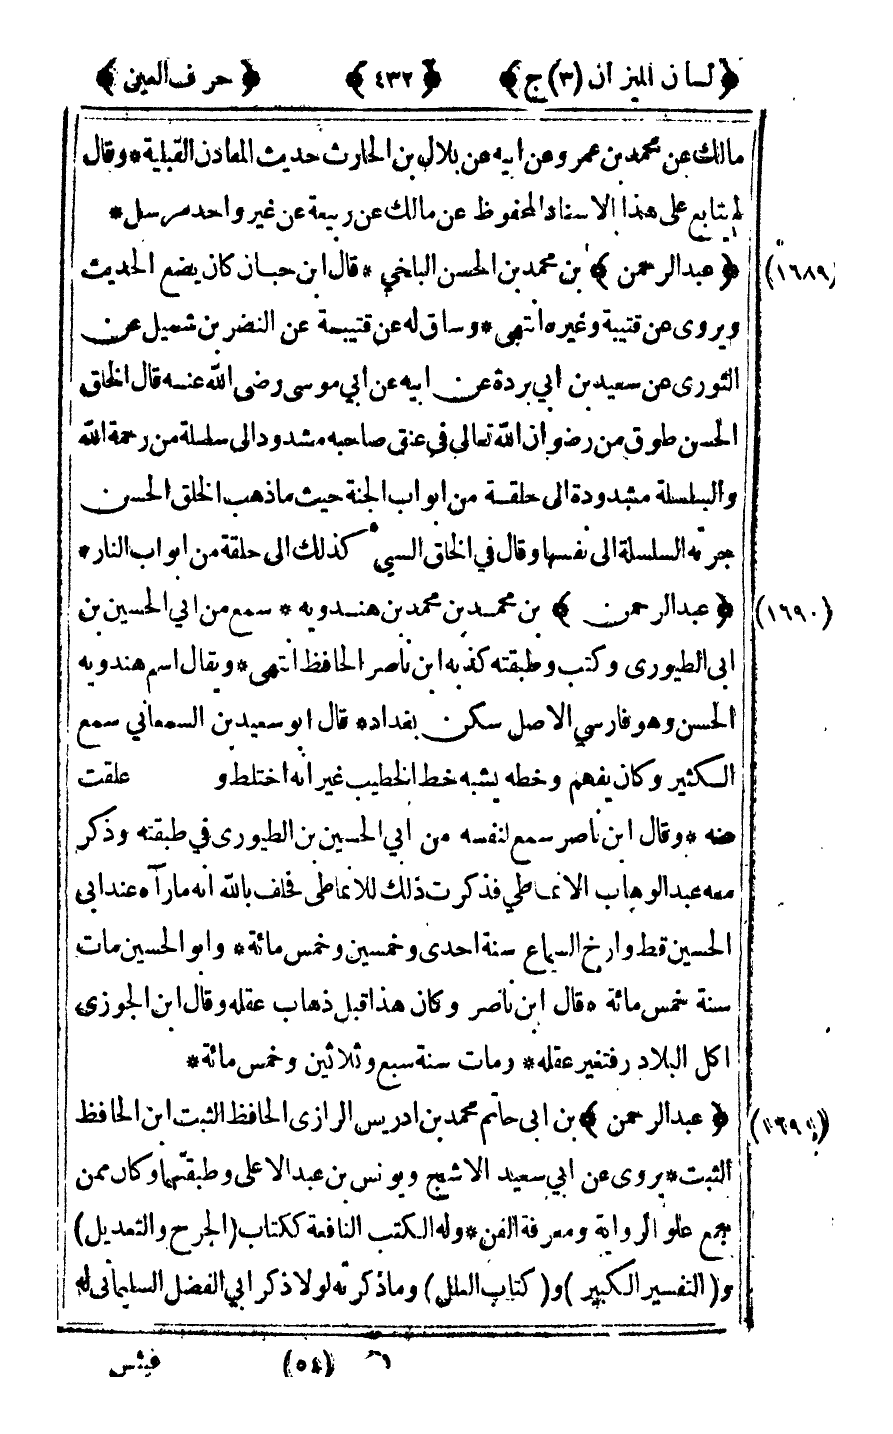 ﴿ لسان الميزان (٣) ج ﴾ ﴿ ٤٣٢ ﴾ ﴿ حرف العين ﴾
مالك عن محمد بن عمرو عن ابيه عن بلال بن الحارث حديث المعادن القبلية * وقال
لم يتابع على هذا الاسناد المحفوظ عن مالك عن ربيعة عن غير واحد مرسل *
(١٦٨٩) ﴿ عبد الرحمن ﴾ بن محمد بن الحسن البلخي * قال ابن حبان كان يضع الحديث
ويروى عن قتيبة وغيره انتهى * وساق له عن قتيبة عن النضر بن شميل عن
الثورى عن سعيد بن ابي بردة عن ابيه عن ابي موسى رضى الله عنه قال الخلق
الحسن طوق من رضوان الله تعالى في عنق صاحبه مشدود الى سلسلة من رحمة الله
والسلسلة مشدودة الى حلقة من ابواب الجنة حيث ما ذهب الخلق الحسن
جرته السلسلة الى نفسها وقال في الخلق السيئ كذلك الى حلقة من ابواب النار *
(١٦٩٠) ﴿ عبد الرحمن ﴾ بن محمد بن محمد بن هندويه * سمع من ابي الحسين بن
ابى الطيورى وكتب وطبقته كذبه ابن ناصر الحافظ انتهى * ويقال اسم هندويه
الحسن وهو فارسي الاصل سكن بغداد * قال ابو سعيد بن السمعاني سمع
الكثير وكان يفهم وخطه يشبه خط الخطيب غير انه اختلط و علقت
عنه * وقال ابن ناصر سمع لنفسه من ابي الحسين بن الطيورى في طبقته وذكر
معه عبد الوهاب الانماطي فذكرت ذلك للانماطى فحلف بالله انه ما رآه عند ابى
الحسين قط وارخ السماع سنة احدى وخمسين وخمس مائة * وابو الحسين مات
سنة خمس مائة * قال ابن ناصر وكان هذا قبل ذهاب عقله وقال ابن الجوزى
اكل البلاد رفتغير عقله * ومات سنة سبع وثلاثين وخمس مائة *
(١٦٩١) ﴿ عبد الرحمن ﴾ بن ابى حاتم محمد بن ادريس الرازى الحافظ الثبت ابن الحافظ
الثبت * يروى عن ابي سعيد الاشج ويونس بن عبد الاعلى وطبقتهما وكان ممن
جمع علو الرواية ومعرفة الفن * وله الكتب النافعة ككتاب (الجرح والتعديل)
و (التفسير الكبير) و (كتاب العلل) وما ذكرته لولا ذكر ابي الفضل السليمانى له
(٥٤) فبئس